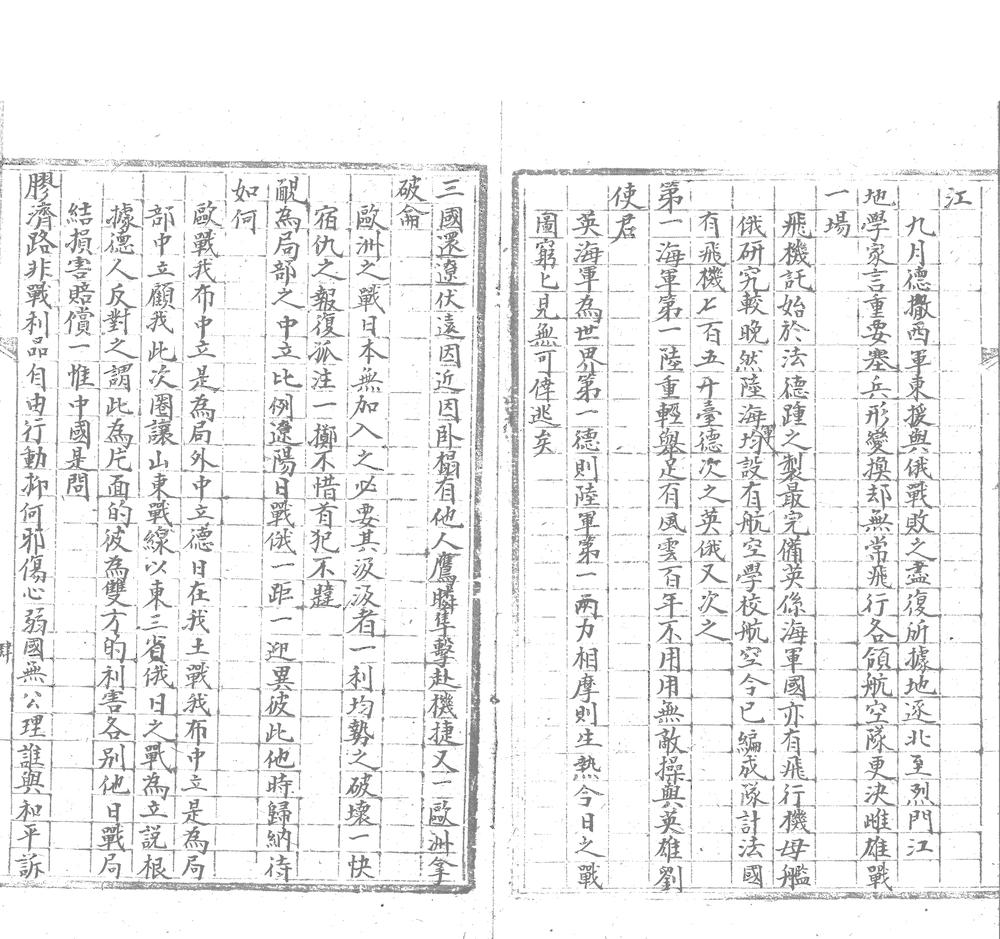 江
九月德撒西軍東援與俄戰敗之盡復所據地逐北至烈門江
地學家言重要塞兵形變換却無常飛行各領航空隊更決雌雄戰
一場
飛機託始於法德踵之製最完備英係海軍國亦有飛行機母艦
俄研究較晚然陸海均設有航空學校航空今已編成隊計法國
有飛機七百五十臺德次之英俄又次之
第一海軍第一陸重輕舉足有風雲百年不用用無敵操與英雄劉
使君
英海軍為世界第一德則陸軍第一兩力相摩則生熱今日之戰
圖窮匕見無可倖逃矣
三國還遼伏遠因近因卧榻有他人鷹瞵隼擊赴機捷又一歐洲拿
破侖
歐洲之戰日本無加入之必要其汲汲者一利均勢之破壞一快
宿仇之報復孤注一擲不惜首犯不韙
靦為局部之中立比例遼陽日戰俄一距一迎異彼此他時歸納待
如何
歐戰我布中立是為局外中立德日在我土戰我布中立是為局
部中立顧我此次圈讓山東戰線以東三省俄日之戰為立說根
據德人反對之謂此為片面的彼為雙方的利害各別他日戰局
結損害賠償一惟中國是問
膠濟路非戰利品自由行動抑何邪傷心弱國無公理誰與和平訴